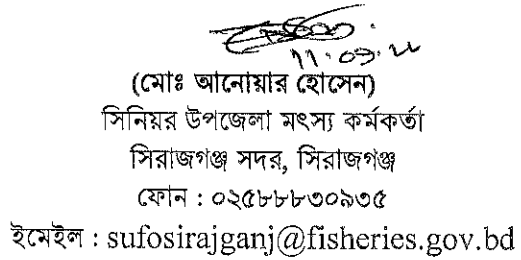 (মোঃ আনোয়ার হোসেন)
সিনিয়র উপজেলা মৎস্য কর্মকর্তা
সিরাজগঞ্জ সদর, সিরাজগঞ্জ
ফোন : ০২৫৮৮৮৩০৯৩৫
ইমেইল : sufosirajganj@fisheries.gov.bd